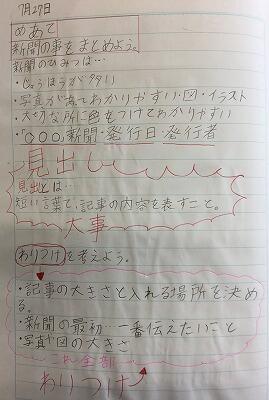 7月27日
めあて
新聞の事をまとめよう。
新聞のひみつは…
・じょうほうがタタい
・写真があてわかりやすい・図・イラスト
・大切な所に色をつけてわかりやすい
・「○○○新聞・発行日・発行者
見出し
見出とは…
短い言葉で、記事の内容を表すこと。
大事
わりつけを考えよう。
・記事の大きさと入れる場所を決め
る。
・新聞の最初…一番伝えたいこと
・写真や図の大きさ
これ全部
わりつけ